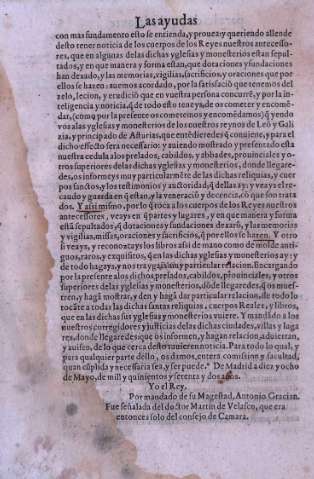 Las ayudas
con mas fundamento esto se entienda, y prouea: y queriendo allende
desto tener noticia de los cuerpos de los Reyes nuestros antecesso-
res, que en algunas de las dichas yglesias y monesterios estan sepul-
tados, y en que manera y forma estan, que dotaciones y fundaciones
han dexado, y las memorias, vigilias, sacrificios, y oraciones que por
ellos se hazen: auemos acordado, por la satisfacion que tenemos del
zelo, lecion, y erudició que en vuestra persona concurre, y por la in-
teligencia y noticia, q̃ de todo esto teneys, de os cometer y encomé-
dar, (como por la presente os cometemos y encomédamos) q̃ yendo
vos a las yglesias y monesterios de lo nuestros reynos de Leó y Gali
zia, y principado de Asturias, que entédieredes q̃ conuiene, y para el
dicho effecto sera necessario: y auiendo mostrado y presentado esta
nuestra cedula a los prelados, cabildos, abbades, prouinciales y o-
tros superiores de las dichas yglesias y monesterios, donde llegare-
des, os informeys muy particularméte de las dichas reliquias, y cuer
pos sanctos, y los testimonios y auctoridad, q̃ dellas ay: y veays el re-
caudo y guarda en q̃ estan, y la veneració y decencia, có que son tra-
tados. Y assi mismo, por lo q̃ toca a los cuerpos de los Reyes nuestros
antecessores, veays en q̃ partes y lugares, y en que manera y forma
está sepultados, q̃ dotaciones y fundaciones dexaró, y las memorias
y vigilias, missas, oraciones y sacrificios, q̃ por ellos se hazen. Y otro
si veays, y reconozcays los libros assi de mano como de molde anti-
guos, raros, y exquisitos, q̃ en las dichas yglesias y monesterios ay: y
de todo hagays, y nos trayays vna particular relacion. Encargando
por la presente a los dichos prelados, cabildos, prouinciales, y otros
superiores de las yglesias y monesterios, dóde llegaredes, q̃ os mues-
tren, y hagá mostrar, y den y hagá dar particular relacion, de todo lo
tocáte a todas las dichas santas reliquias, cuerpos Reales, y libros,
que en las dichas yglesias y monesterios vuiere. Y mandado a los
nuestros corregidores y justicias de las dichas ciudades, villas y luga
res, donde llegaredes: que os informen, y hagan relacion, aduiertan,
y auisen, de lo que cerca desto tuuieren noticia. Para todo lo qual, y
para qualquier parte dello, os damos, entera comissió y facultad,
quan cúplida y necessaria sea, y ser puede. De Madrid a diez y ocho
de Mayo, de mill y quinientos y setenta y dos años.
Yo el Rey.
Por mandado de su Magestad, Antonio Gracian.
Fue señalada del doctor Martin de Velasco, que era
entonces solo del consejo de Camara.